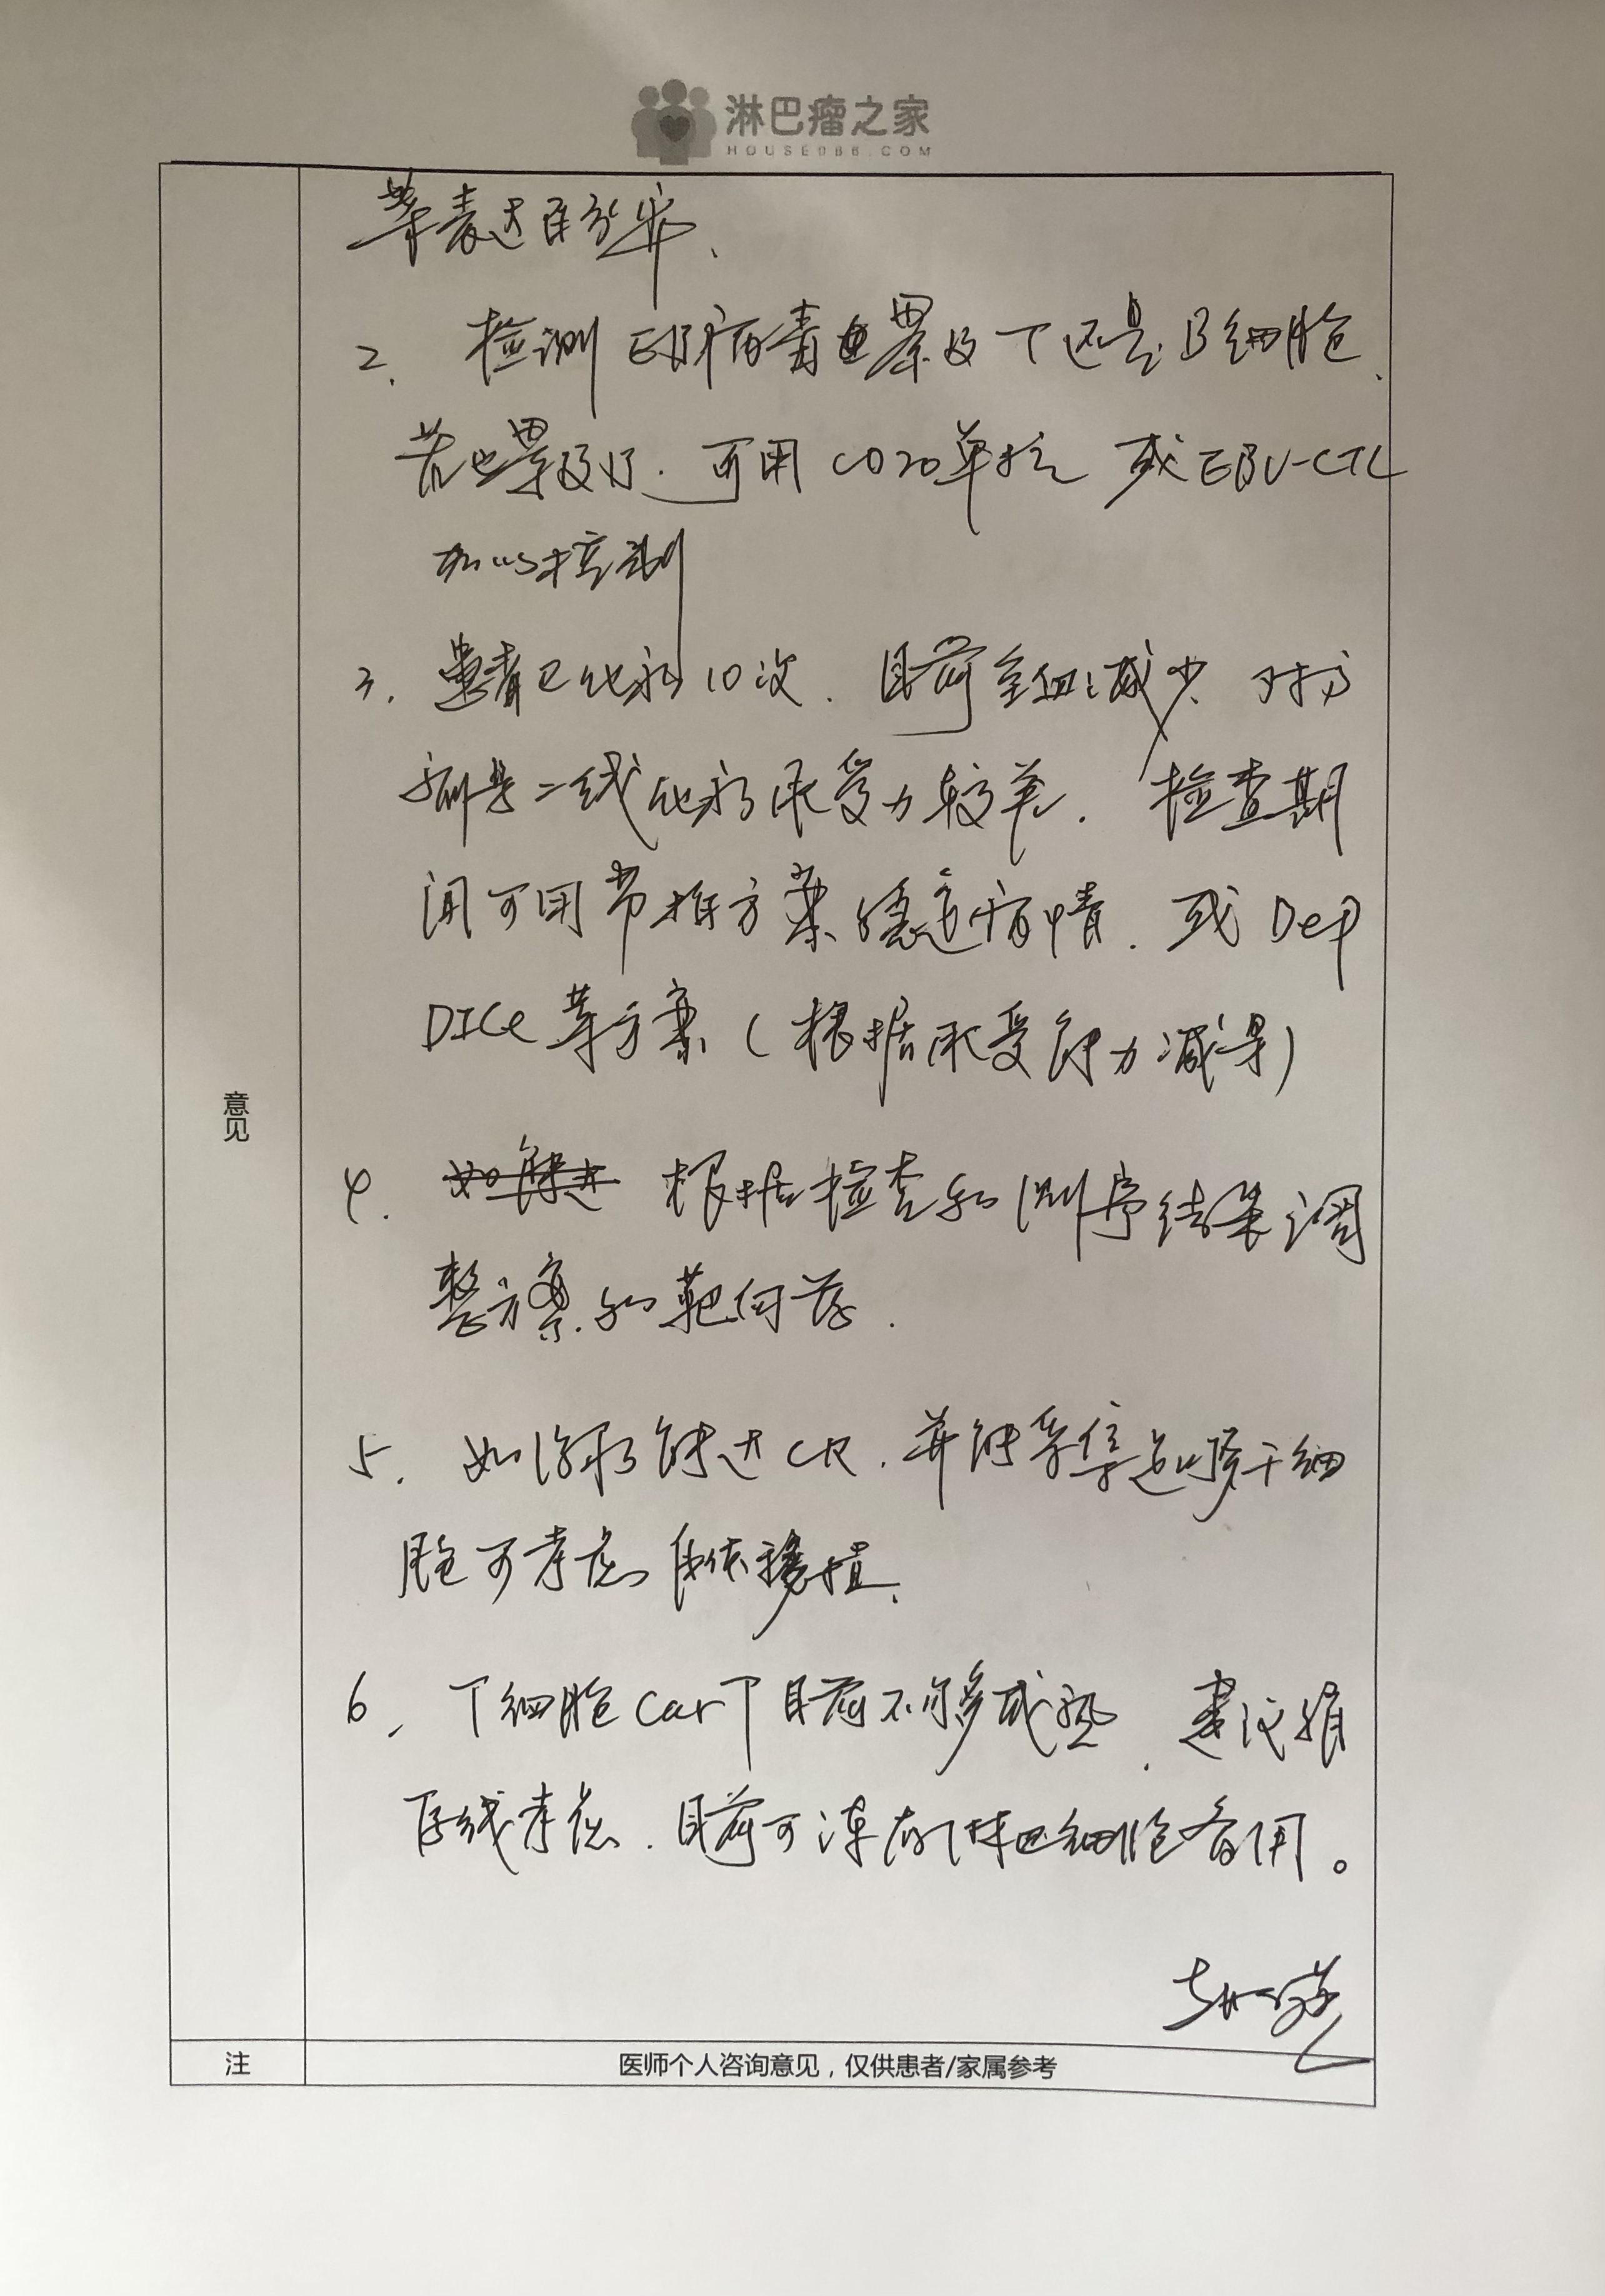 淋巴瘤之家
HOUSE086.COM
等表达百分率、
2. 检测EB病毒累及T还是B细胞.
若也累及B.可用CD20单抗 或EBV-CTL
加以控制
3. 患者已化疗10次.目前全血减少.对
二线化疗承受力较差. 检查期
间可用 方案稳定病情. 或 DeP
DICe等方案(根据承受能力减量)
4. 根据检查和测序结果调
整方案.和靶向药.
5. 如治疗能达CR.并能 造血干细
胞可考虑自体移植.
6、T细胞CarT目前不够成熟.建议
后线考虑.目前可冻存淋巴细胞备用。
意见
注
医师个人咨询意见，仅供患者/家属参考